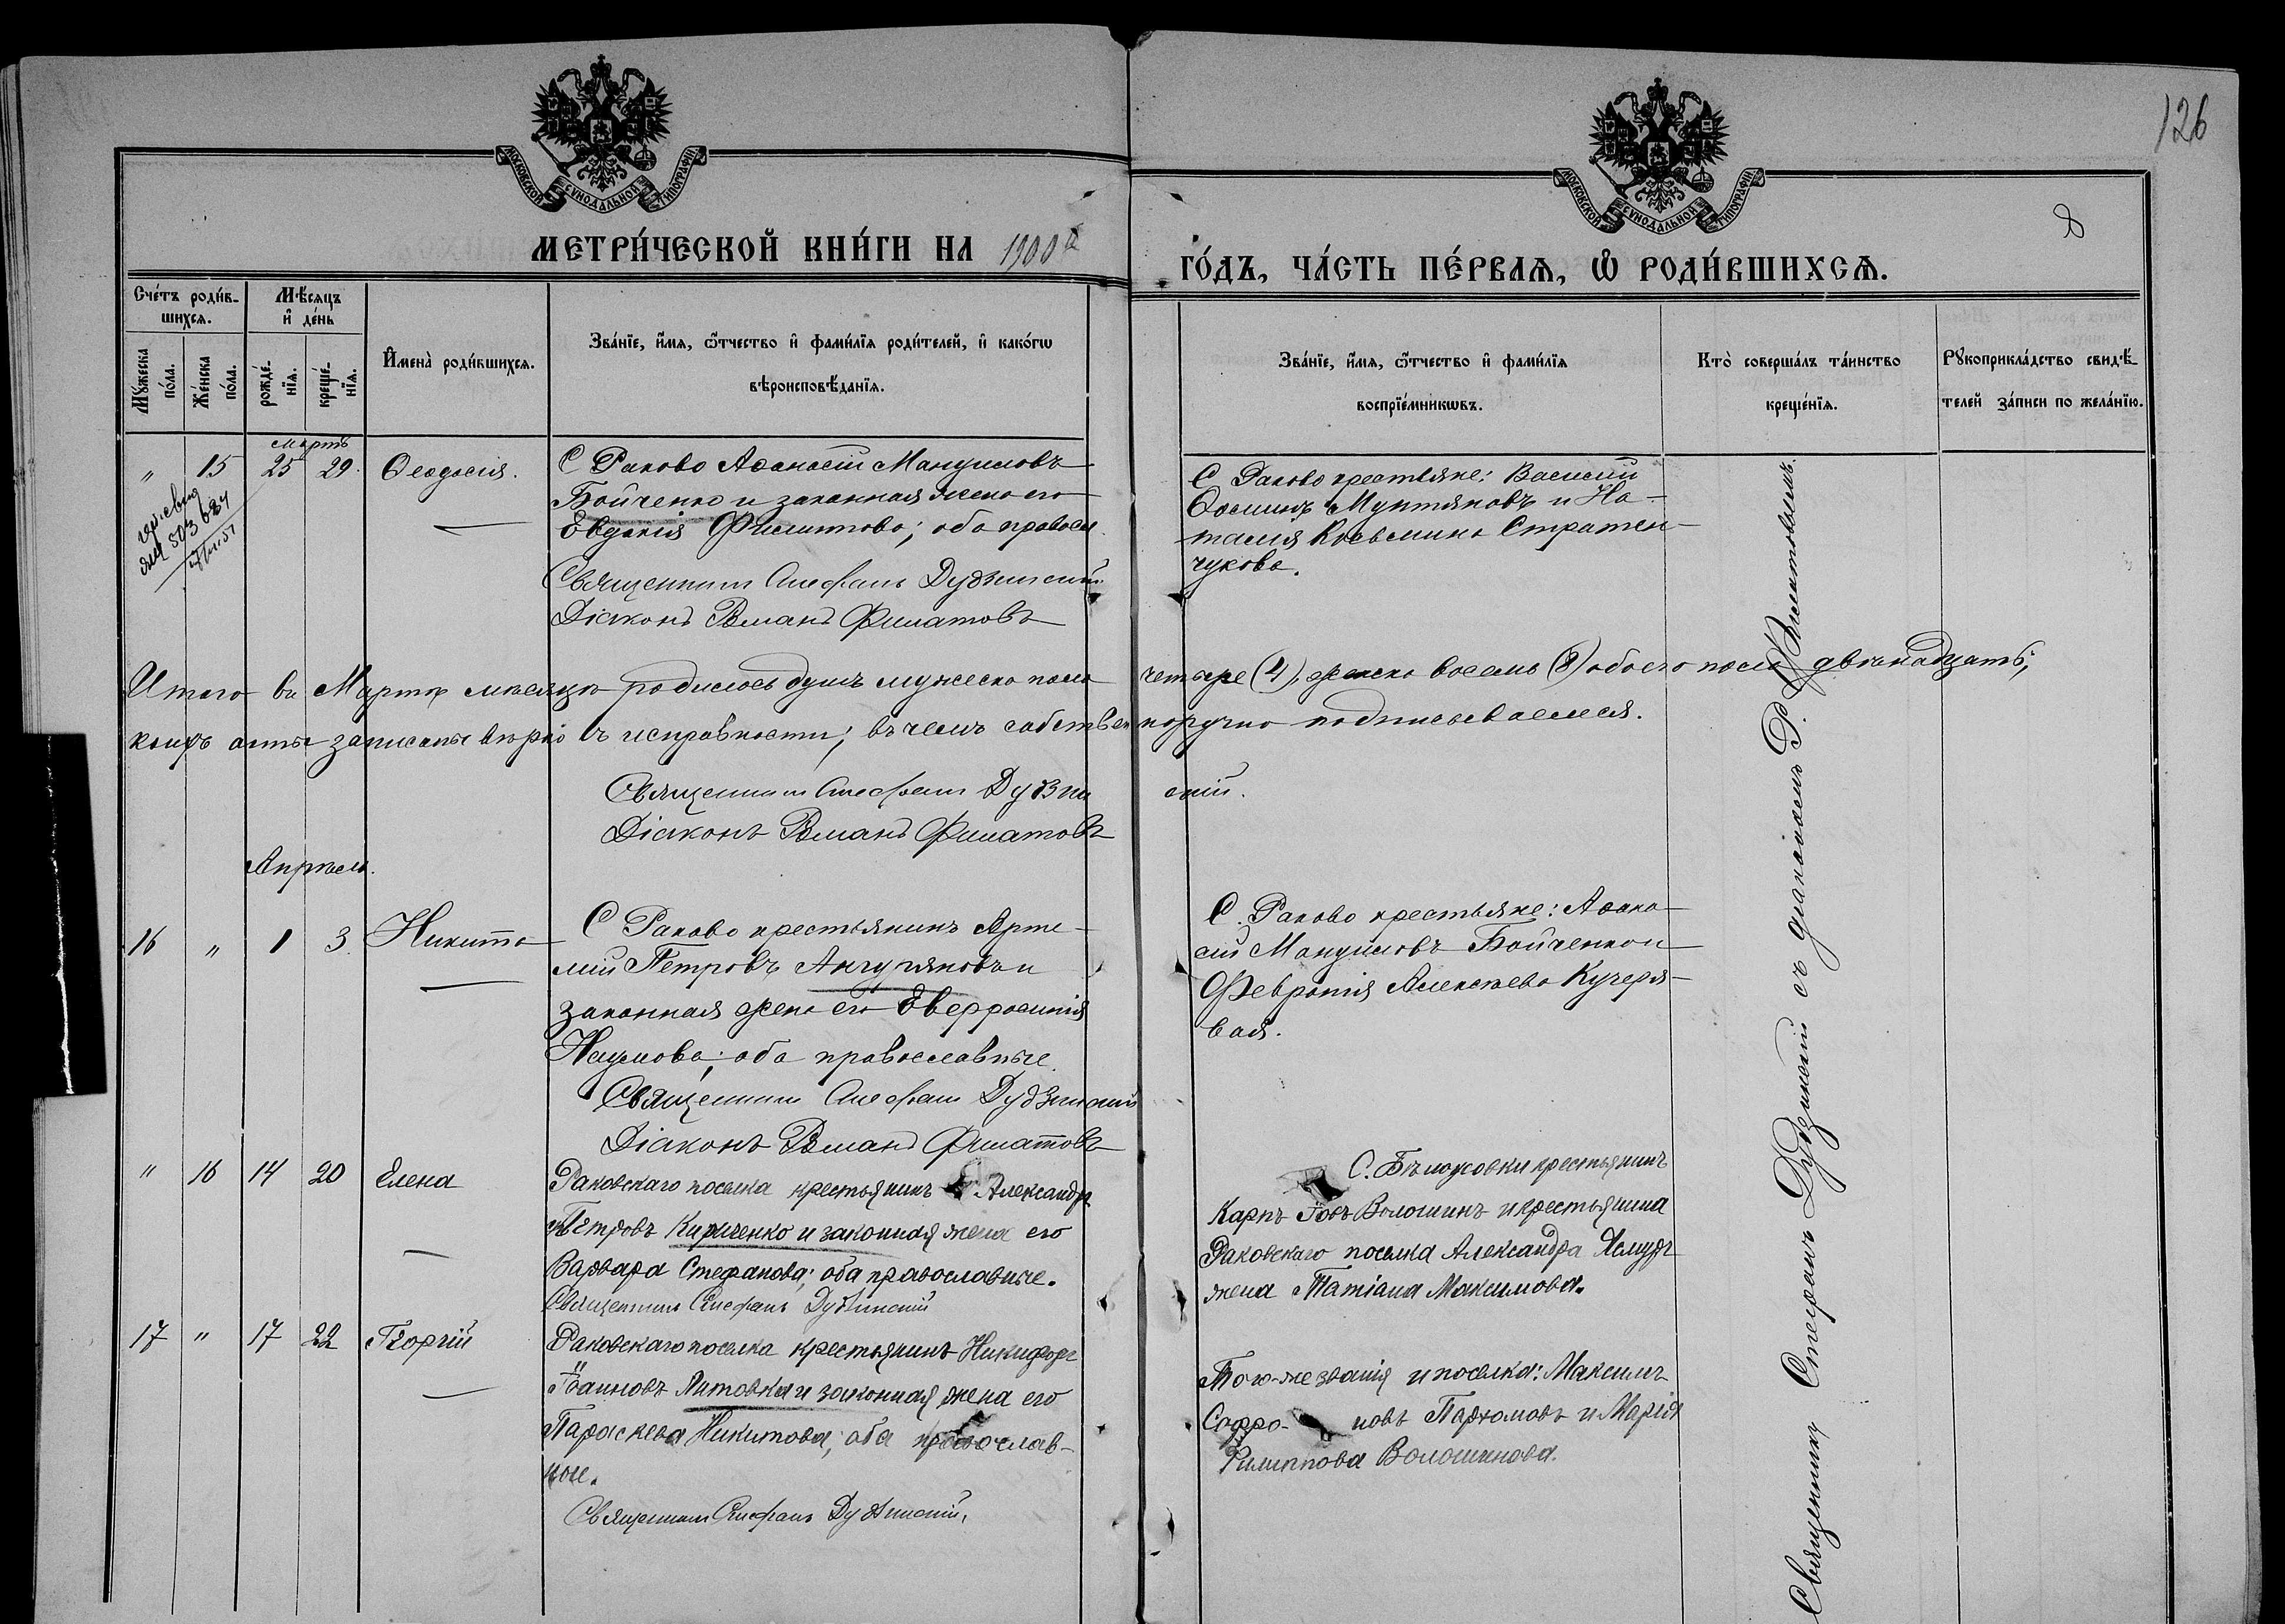 126
8
МОСКОВСКОЙ СѴНОДАЛЬНОЙ ТИПОГРАФІИ
МОСКОВСКОЙ СѴНОДАЛЬНОЙ ТИПОГРАФІИ
МЕТРИ́ЧЕСКОЙ КНИ́ГИ НА 1900й
ГО́ДЪ, ЧА́СТЬ ПЕ́РВАѦ, Ѡ҆ РОДИ́ВШИХСѦ.
Сче́тъ роди́в-
шихсѧ.
Мѣ́сѧцъ
и҆ де́нь
Мꙋ́жеска по́ла.
Же́нска по́ла.
рожде́-нїѧ.
креще́-нїѧ.
И҆мена̀ роди́вшихсѧ.
Зва́нїе, и҆́мѧ, ѻ҆́тчество и҆ фами́лїѧ роди́телей, и҆ како́гѡ
вѣроисповѣ́данїѧ.
Зва́нїе, и҆́мѧ, ѻ҆́тчество и҆ фами́лїѧ
воспрїе́мникѡвъ.
Кто̀ соверша́лъ та́инство
креще́нїѧ.
Рꙋкоприкла́дство свидѣ́-
телей за́писи по жела́нїю.
Мартъ
" 15 25 29. Ѳеодосія.
С Раково Аѳанасій Мануиловъ
Бойченко и законная жена его
Евдокія Филиппова; оба правосл.
Священникъ Стефанъ Дудзинскій
Діаконъ Романъ Филатовъ
С Раково крестьяне: Василій
Ѳоминъ Мунтяновъ и На-
талія Косьмина Стратей-
чукова.
503684
Итого въ Мартѣ мѣсяцѣ родилось душъ мужеска пола четыре (4), женска восемь (8) обоего пола двѣнадцать;
коихъ акты записаны вѣрно въ исправности; въ чемъ собственноручно подписываемся.
Священникъ Стефанъ Дудзинскій.
Діаконъ Романъ Филатовъ
Апрѣль.
16 " 1 3. Никита
С Раково крестьянинъ Арте-
мій Петровъ Ангуляновъ и
законная жена его Евфросинія
Наумова; оба православные.
Священникъ Стефанъ Дудзинскій
Діаконъ Романъ Филатовъ
С. Раково крестьяне: Аѳана-
сій Мануиловъ Бойченко и
Февронія Алексѣева Кучеря-
вая.
" 16 14 20 Елена
Раковскаго поселка крестьянинъ Александръ
Петровъ Кириченко и законная жена его
Варвара Стефанова; оба православные.
Священникъ Стефанъ Дудзинскій
С. Бѣлоусовки крестьянинъ
Карпъ Іовъ Волошинъ и крестьянина
Раковскаго поселка Александра
жена Татіана Максимова.
17 " 17 22 Георгій
Раковскаго поселка крестьянинъ Никифоръ
Іоанновъ Литовка и законная жена его
Параскева Никитова; оба православ-
ные.
Священникъ Стефанъ Дудзинскій.
Того-же званія и поселка: Максимъ
Софро- новъ Пархомовъ и Марія
Филиппова Волошинова.
Священникъ Стефанъ Дудзинскій съ діакономъ Р. Филатовымъ.